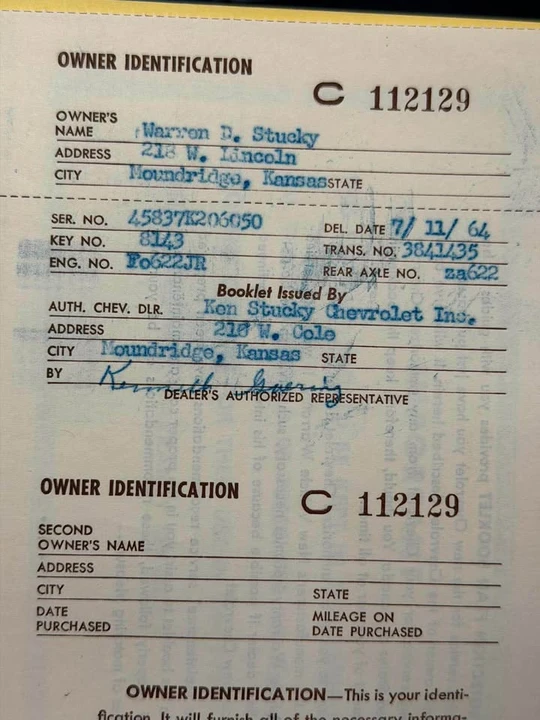 OWNER IDENTIFICATION
C 112129
OWNER'S NAME Warren D. Stucky
ADDRESS 218 W. Lincoln
CITY Moundridge, Kansas STATE
SER. NO. 45837K206050 DEL. DATE 7/ 11/ 64
KEY NO. 8143 TRANS. NO. 3841435
ENG. NO. Fo622JR REAR AXLE NO. za622
Booklet Issued By
AUTH. CHEV. DLR. Ken Stucky Chevrolet Inc.
ADDRESS 218 W. Cole
CITY Moundridge, Kansas STATE
BY Kenneth Goering
DEALER'S AUTHORIZED REPRESENTATIVE
OWNER IDENTIFICATION
C 112129
SECOND
OWNER'S NAME
ADDRESS
CITY STATE
DATE PURCHASED MILEAGE ON DATE PURCHASED
OWNER IDENTIFICATION—This is your identi-
fication. It will furnish all of the necessary informa-